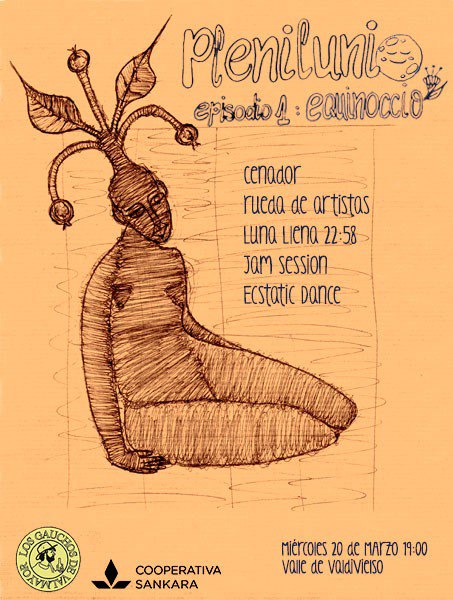 Plenilunio
episodio 1: equinoccio
cenador
rueda de artistas
Luna Llena 22:58
Jam session
Ecstatic Dance
LOS GAUCHOS DE VALMAYOR
COOPERATIVA
SANKARA
Miércoles 20 de Marzo 19:00
Valle de Valdivielso